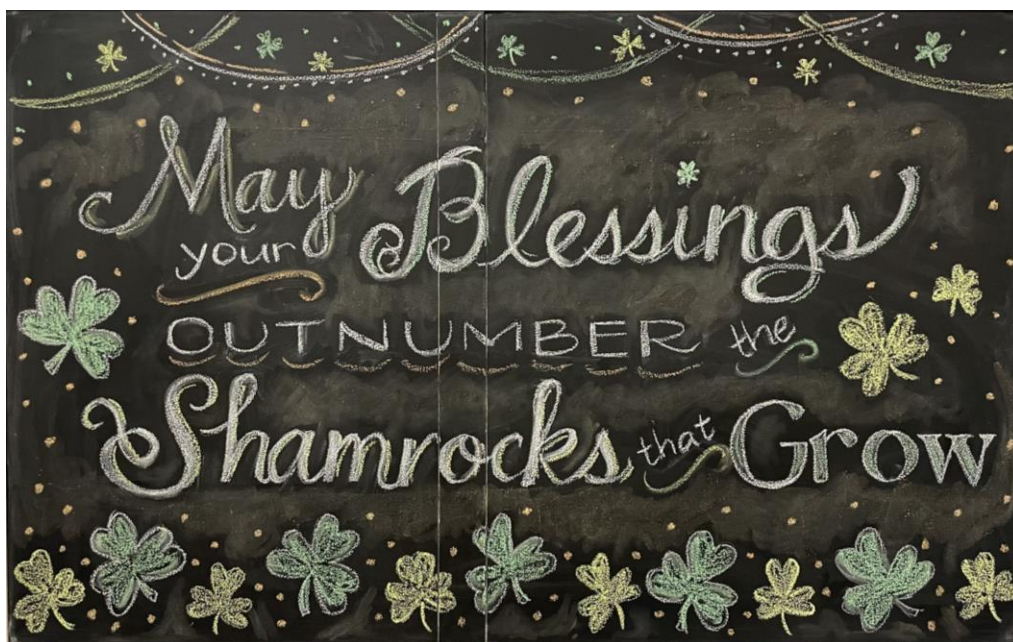 May
your Blessings
OUTNUMBER the
Shamrocks that Grow